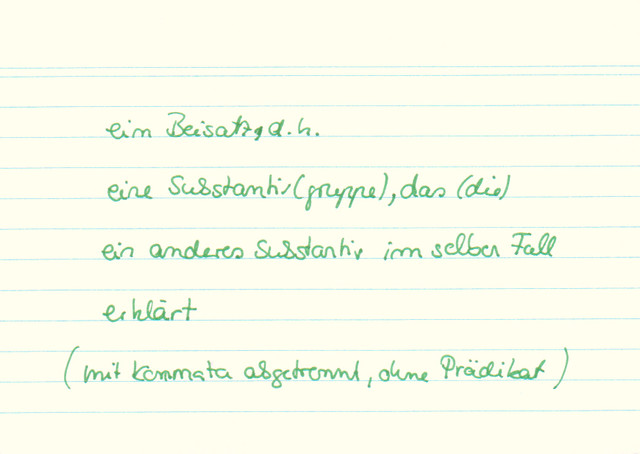 ein Beisatz, d.h.
eine Substantiv(gruppe), das (die)
ein anderes Substantiv im selben Fall
erklärt
(mit Kommata abgetrennt, ohne Prädikat)